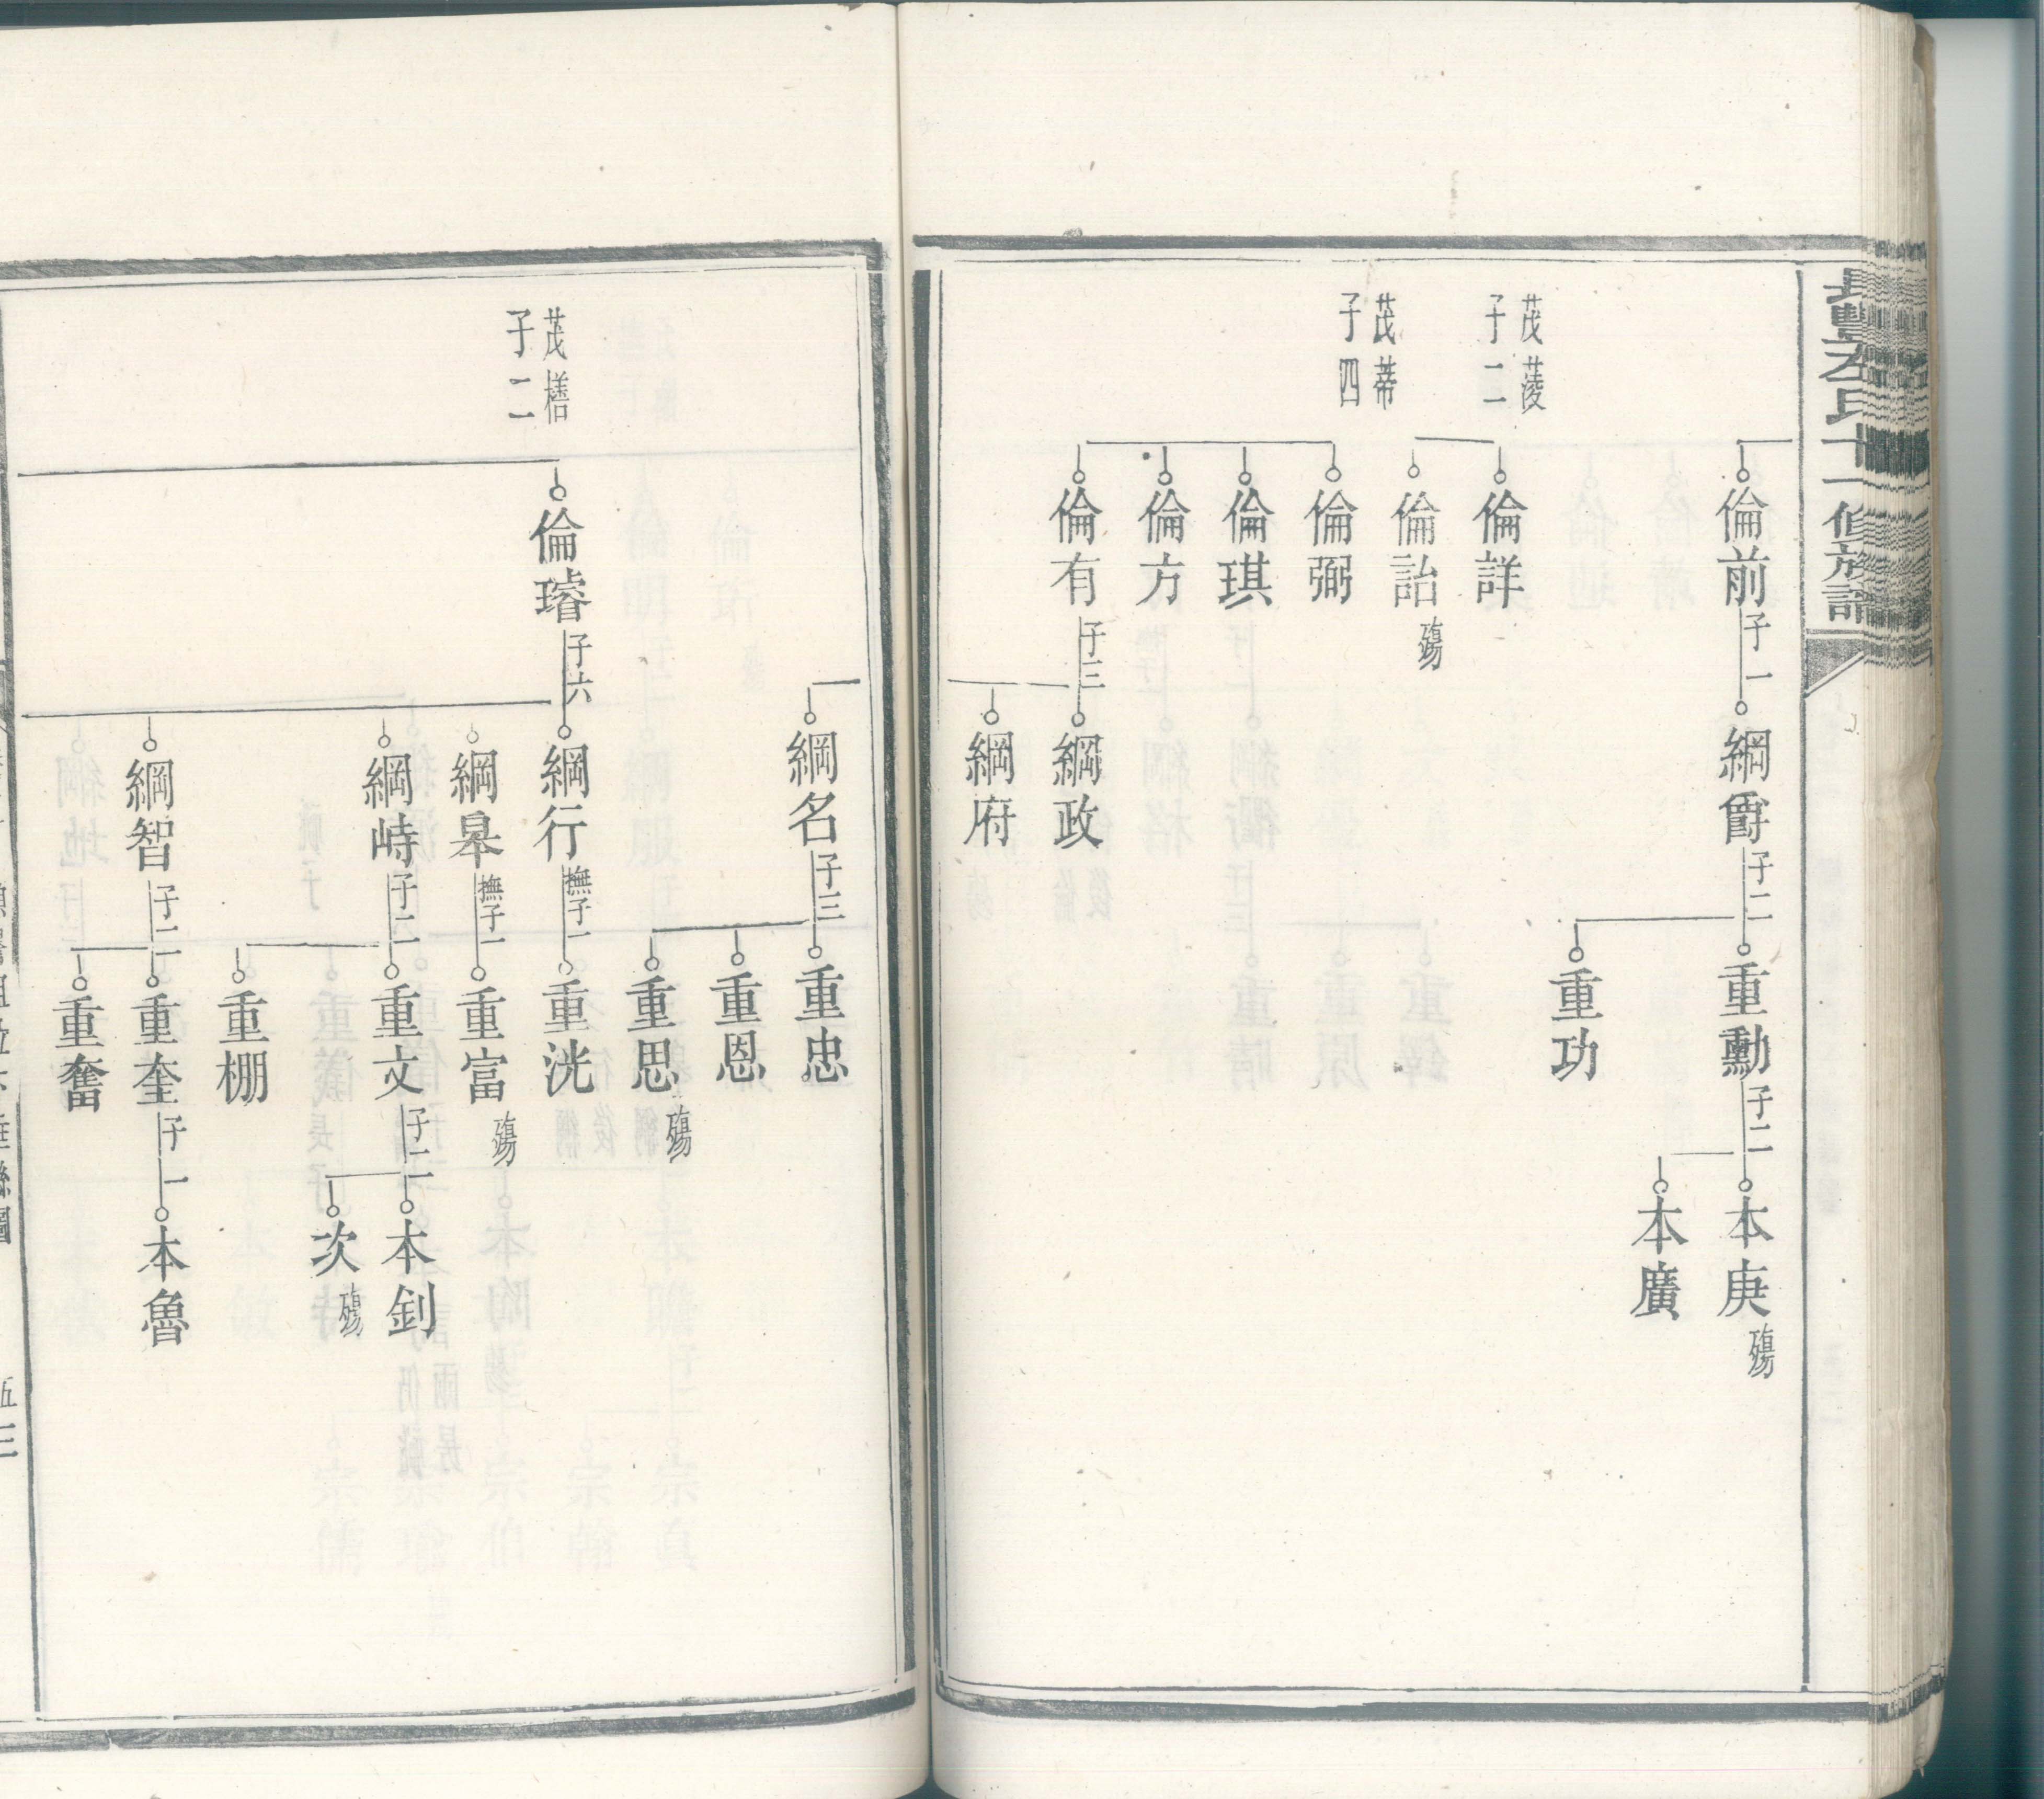 長豐左氏十一修族譜
倫前 子一
綱爵 子二
重勳 子二
本庚 殤
本廣
重功
茂蔆
子二
倫詳
倫詒 殤
茂蒂
子四
倫弼
倫琪
倫方
倫有 子三
綱政
綱府
綱名 子三
重忠
重恩
重思 殤
茂橏
子二
倫璿 子六
綱行 撫子一
重洸
綱皋 撫子一
重富 殤
綱峙 子二
重文 子二
本釗
次 殤
重棚
綱智 子二
重奎 子一
本魯
重奮